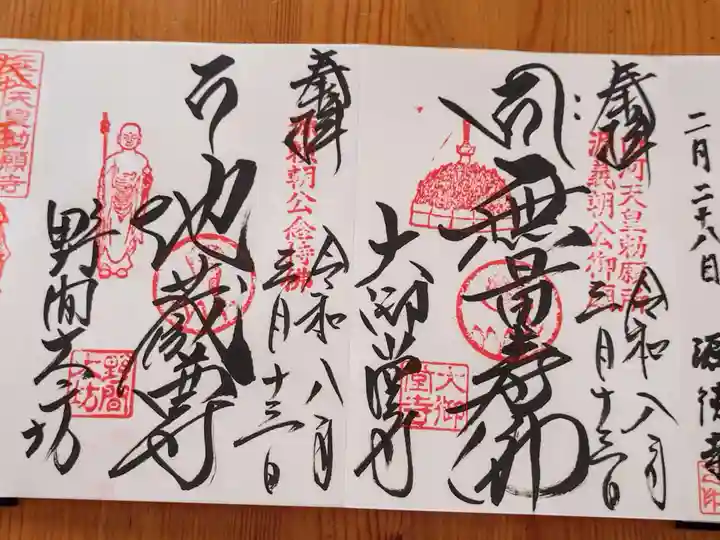 二月二十八日
奉拝
白河天皇勅願所
源義朝公御廟
令和八年
三月十三日
無量寿佛
大御堂寺
大御堂寺
奉拝
源頼朝公念持佛
令和八年
三月十三日
地蔵尊
野間大坊
野間大坊
天皇勅願寺